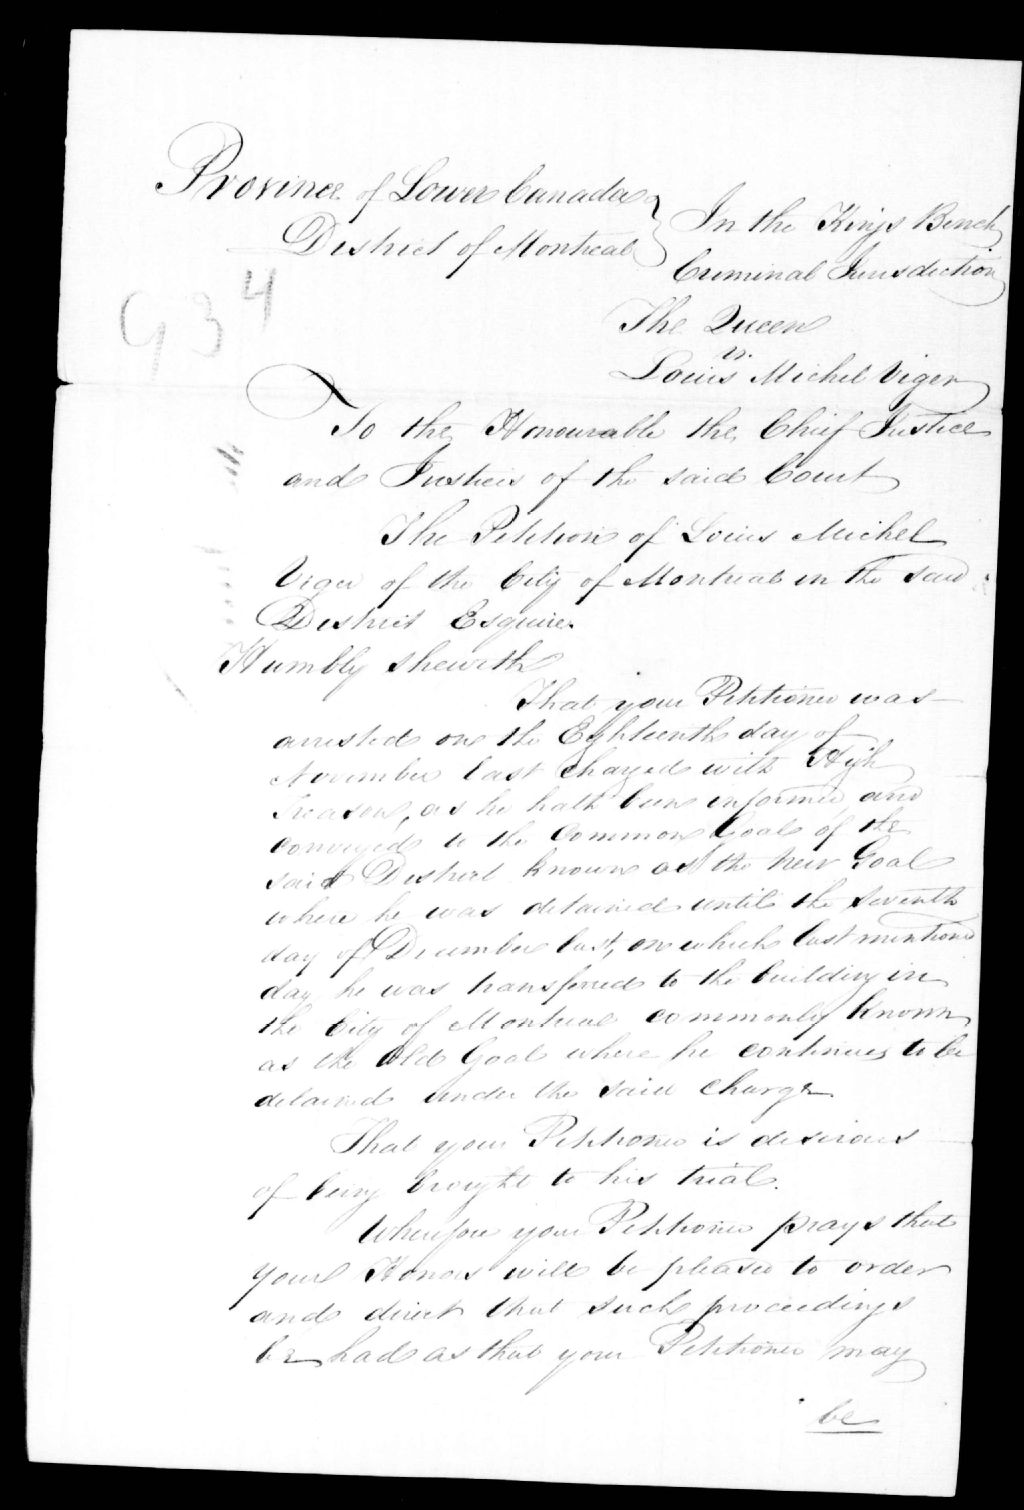 Province of Lower Canada
District of Montreal
In the Kings Bench
Criminal Jurisdiction
934
The Queen
vs.
Louis Michel Viger
To the Honourable the Chief Justice
and Justices of the said Court
The Petition of Louis Michel
Viger of the City of Montreal in the said
District Esquire.
Humbly sheweth
That your Petitioner was
arrested on the Eighteenth day of
November last charged with High
Treason, as he hath been informed and
conveyed to the Common Goal of the
said District known as the New Goal
where he was detained until the seventh
day of December last, on which last mentioned
day he was transferred to the building in
the City of Montreal commonly known
as the Old Goal where he continues to be
detained under the said charge
That your Petitioner is desirous
of being brought to his trial.
Wherefore your Petitioner prays that
your Honors will be pleased to order
and direct that such proceedings
be had as that your Petitioner may
be